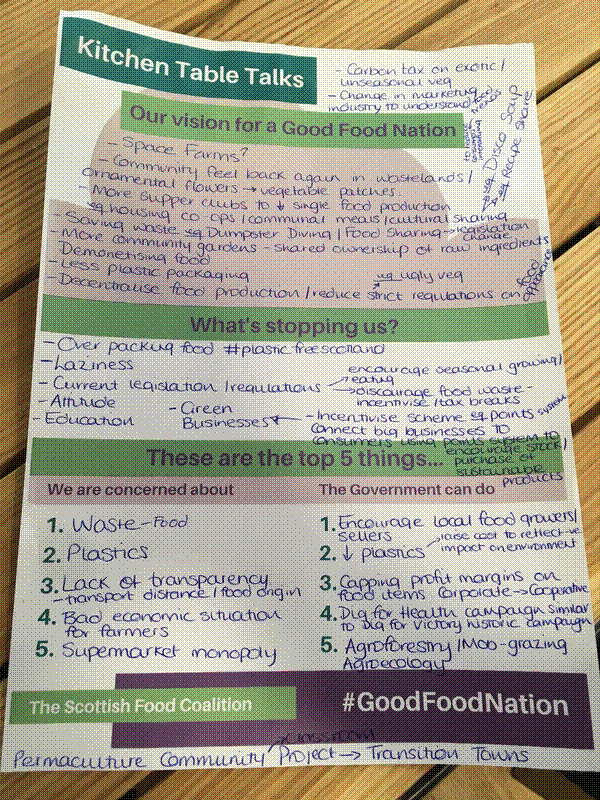 Kitchen Table Talks
- Carbon tax on exotic/
unseasonal veg
- Change in marketing
industry to understand food
trends
Our vision for a Good Food Nation
→ eg Disco Soup
→ eg Recipe share
- Space Farms?
- Community feel back again in wastelands/
ornamental flowers → vegetable patches.
- More supper clubs to ↓ single food production
eg housing co-ops/communal meals/cultural sharing
- Saving waste eg Dumpster Diving / Food Sharing → legislation
change
- More community gardens - shared ownership of raw ingredients
Demonetising food
- Less plastic packaging
eg ugly veg
- Decentralise food production / reduce strict regulations on food
appearance
What's stopping us?
- Over packing food #plasticfreescotland
- Laziness
encourage seasonal growing/
eating
- Current legislation / regulations
→ discourage food waste -
incentivise / tax breaks
- Attitude
- Green
Businesses
- Education
- Incentivise scheme eg points system
Connect big businesses to
consumers using points system to
encourage stock/
purchase of
sustainable
products
These are the top 5 things...
We are concerned about
1. Waste - Food
2. Plastics
3. Lack of transparency
- transport distance / food origin
4. Bad economic situation
for farmers
5. Supermarket monopoly
The Government can do
1. Encourage local food growers/
sellers
2. ↓ plastics
raise cost to reflect -ve
impact on environment
3. Capping profit margins on
food items Corporate → Cooperative
4. Dig for Health campaign similar
to Dig for Victory historic campaign
5. Agroforestry / Mob-grazing
Agroecology
The Scottish Food Coalition
#GoodFoodNation
→ classroom
Permaculture Community Project → Transition Towns